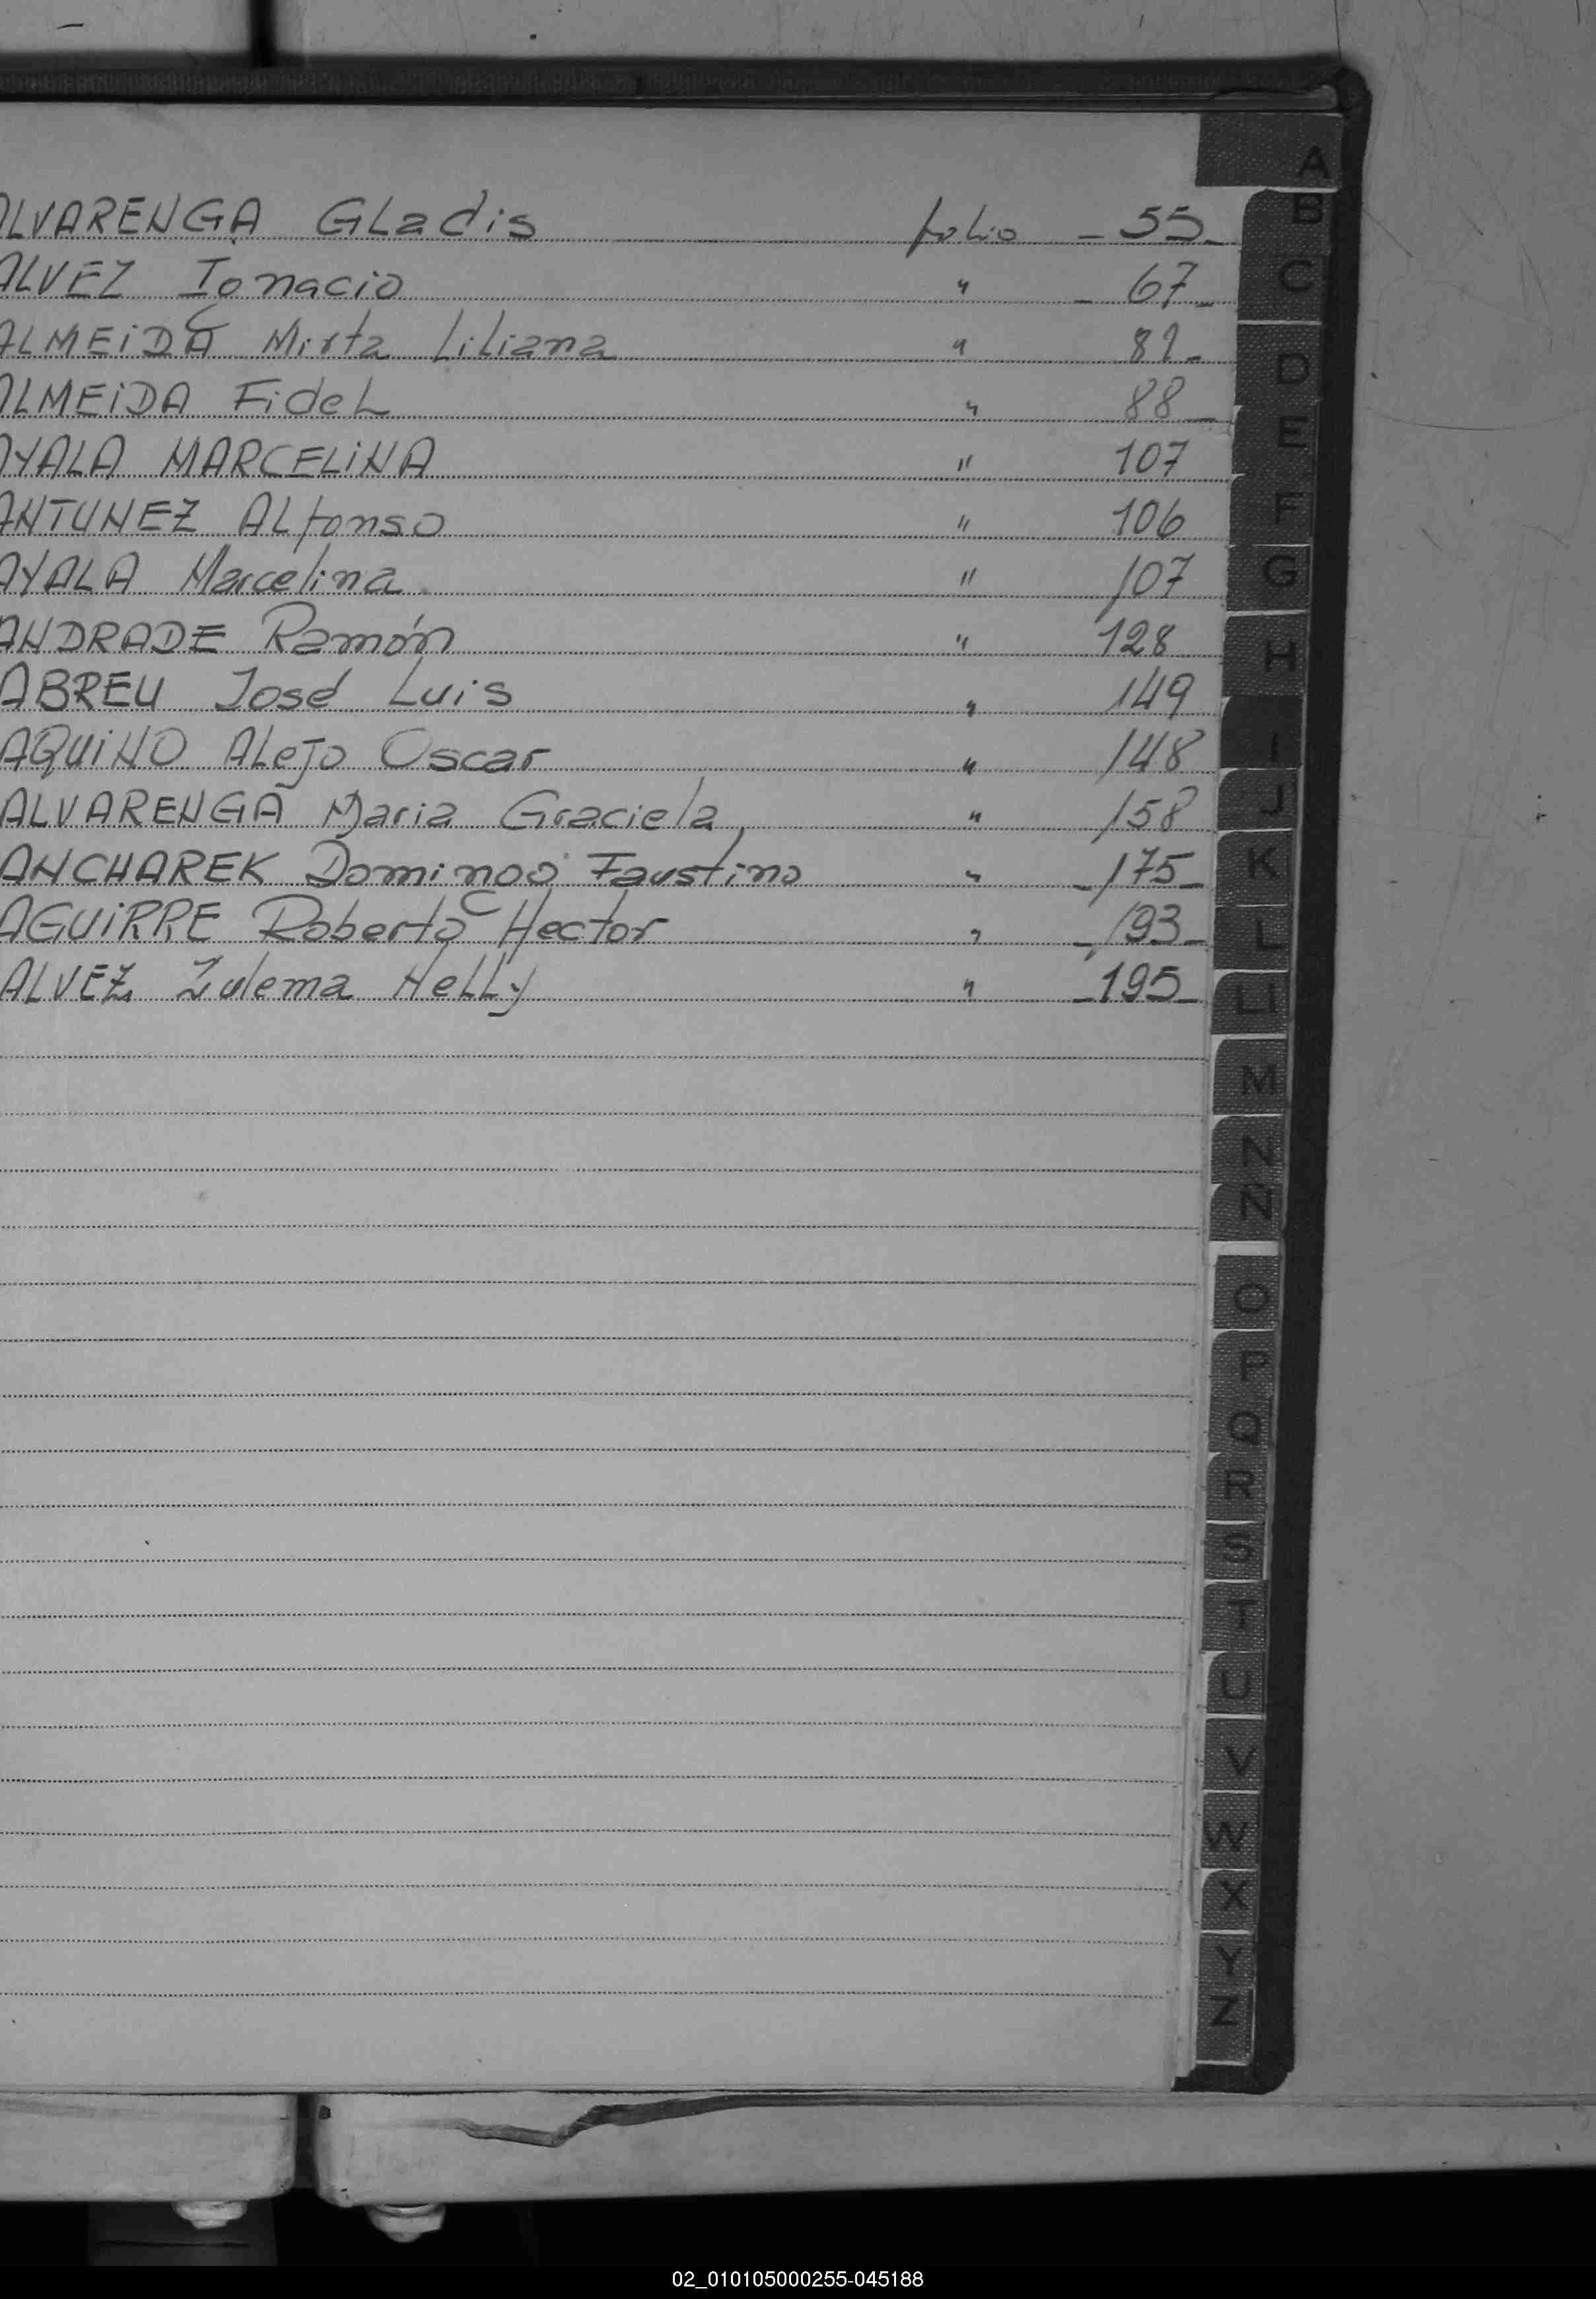 ALVARENGA Gladis folio - 55 -
ALVEZ Ignacio " - 67 -
ALMEIDA Mirta Liliana " 82 -
ALMEIDA Fidel " 88 -
AYALA MARCELINA " 107
ANTUNEZ Alfonso " 106
AYALA Marcelina " 107
ANDRADE Ramón " 128
ABREU José Luis " 149
AQUINO Alejo Oscar " 148
ALVARENGA Maria Graciela " 158
ANCHAREK Domingo Faustino " - 175 -
AGUIRRE Roberto Hector " - 193 -
ALVEZ Zulema Nelly " - 195 -
A
B
C
D
E
F
G
H
I
J
K
L
Ll
M
N
Ñ
O
P
Q
R
S
T
U
V
W
X
Y
Z
02_010105000255-045188